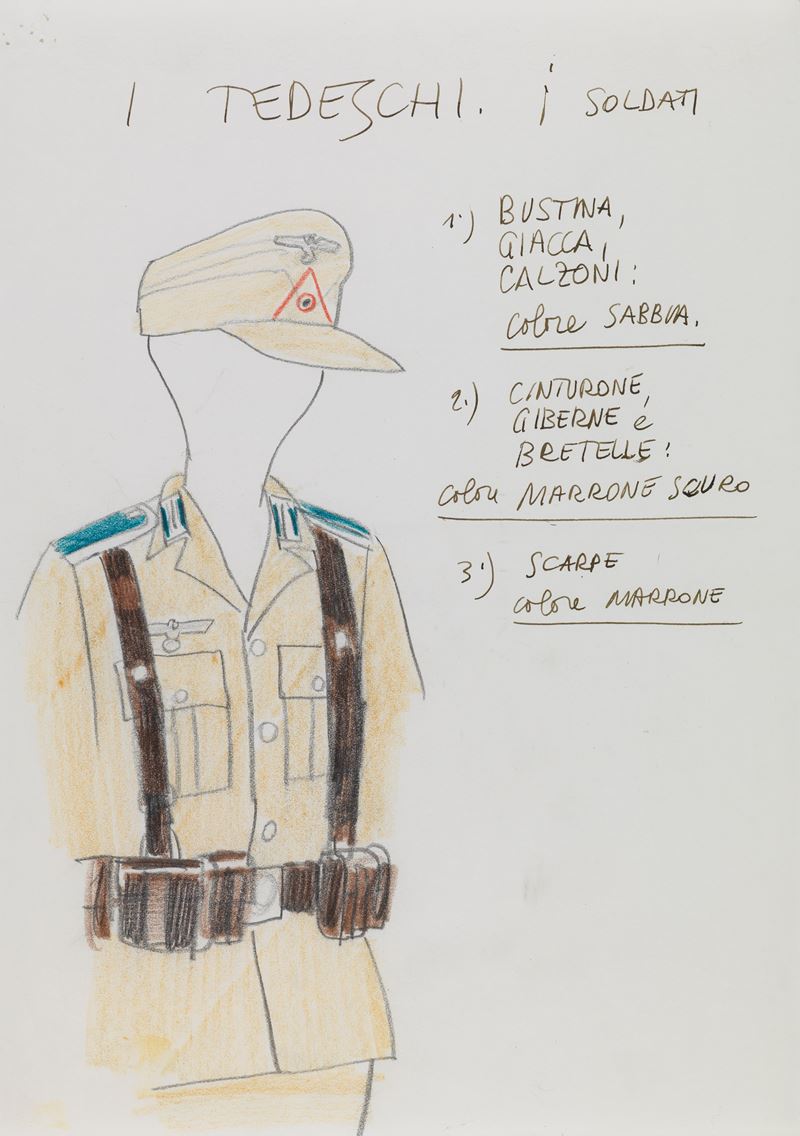 I TEDESCHI. i SOLDATI
1.) BUSTINA,
GIACCA,
CALZONI:
colore SABBIA.
2.) CINTURONE,
GIBERNE e
BRETELLE:
colore MARRONE SCURO
3.) SCARPE
colore MARRONE